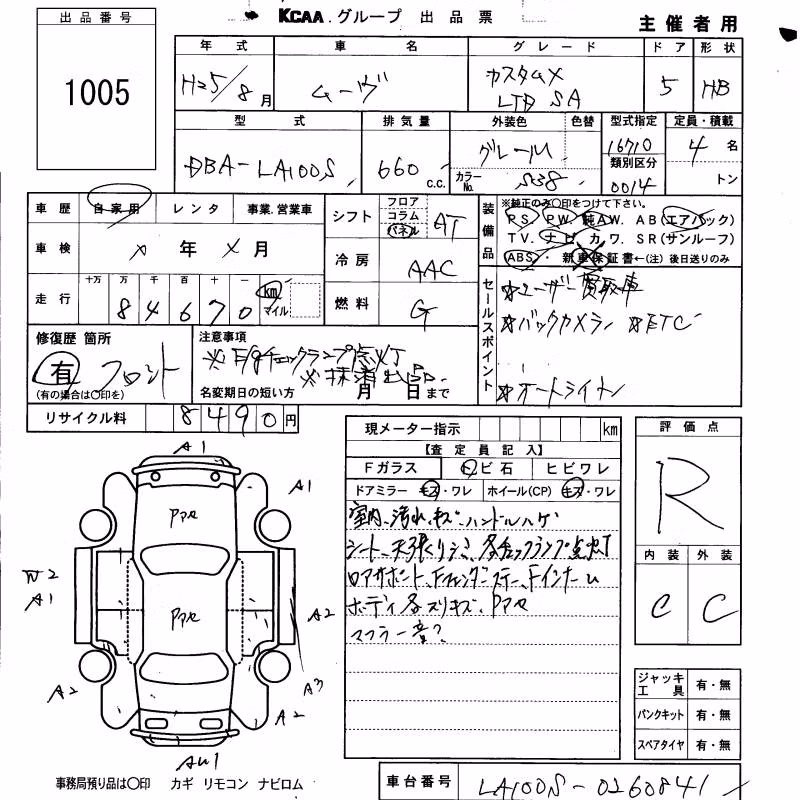 KCAA.グループ 出品票
主催者用
出品番号
1005
年式 車名 グレード ドア 形状
H25/8月 ムーヴ カスタムX 5 HB
LTD SA
型式 排気量 外装色 色替 型式指定 定員・積載
DBA-LA100S 660 c.c. グレーM 16710 4名
カラーNo. S38 類別区分 0014 トン
車歴 自家用 レンタ 事業.営業車
シフト フロア コラム パネル AT
装備品 ※純正のみ〇印をつけて下さい。
PS PW 純AW. AB(エアバック)
TV. ナビ カワ. SR(サンルーフ)
ABS・ 新車保証書←(注)後日送りのみ
車検 X年X月
冷房 AAC
走行 十万 万 千 百 十 一 km マイル
84670
燃料 G
セールスポイント
☆ユーザー買取車
☆バックカメラ ☆ETC
☆オートライト
修復歴 箇所
有 フロント
(有の場合は〇印を)
注意事項
※E/gチェックランプ点灯
※抹消出品
名変期日の短い方 月 日まで
リサイクル料 8490円
現メーター指示 km
【査定員記入】
Fガラス トビ石 ヒビワレ
ドアミラー キズ・ワレ ホイール(CP) キズ・ワレ
室内、汚れ、キズ、ハンドルハゲ
シート、天張りシミ、各チェックランプ点灯
ロアサポート、Fフェンダーステー、Fインナーム
ボディ各スリキズ、Pアセ
マフラー音?
評価点
R
内装 外装
C C
A1
A1
Pアセ
W2
A1
A2
Pアセ
A2
A3
A2
AU1
ジャッキ 工具 有・無
パンクキット 有・無
スペアタイヤ 有・無
事務局預り品は〇印 カギ リモコン ナビロム
車台番号 LA100S-0260841